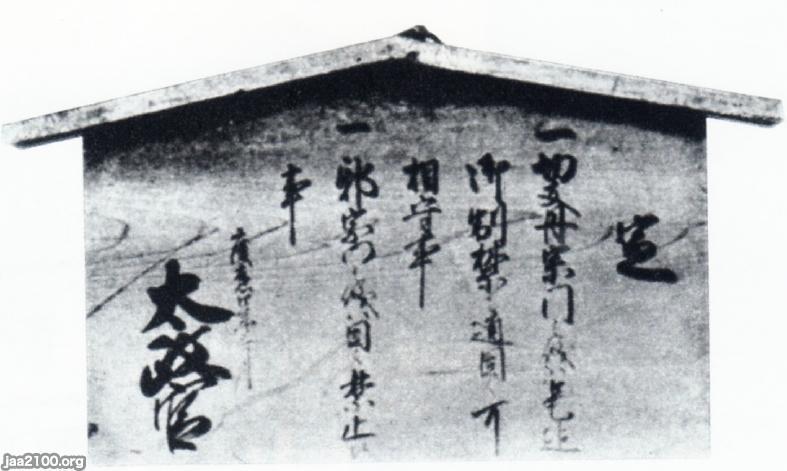 定
一切支丹宗門之儀是迄
御制禁之通固ク可
相守事
一邪宗門之儀固ク禁止候
事
慶應四年三月
太政官
jaa2100.org